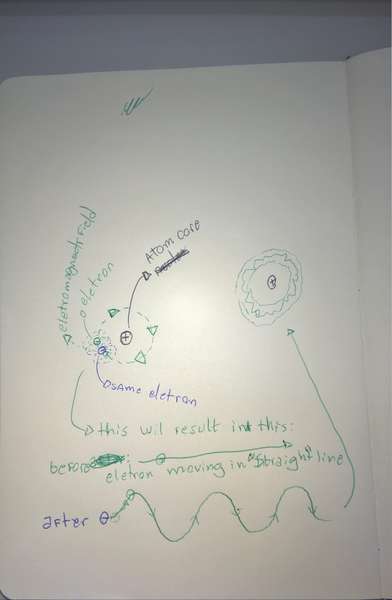 eletromagnect field
o eletron
Atom core
+
+
same eletron
this wil result in this:
before :
eletron moving in "straight" line
after